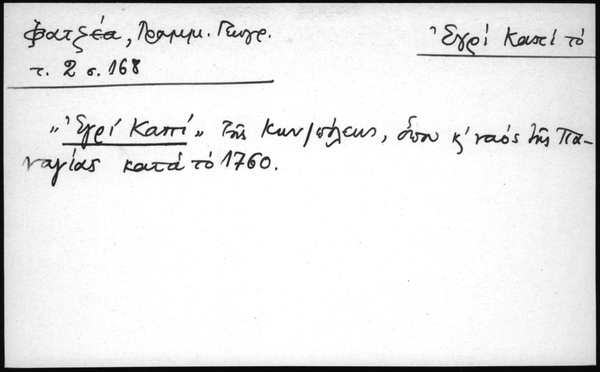 Φατζέα, Γραμμ. Γεωγρ.
τ. 2 σ. 168
Ἐγρί Καπί τό
„Ἐγρί Καπί„ τῆς Κων/πόλεως, ὅπου κ' ναός τῆς Πα-
ναγίας κατά τό 1760.